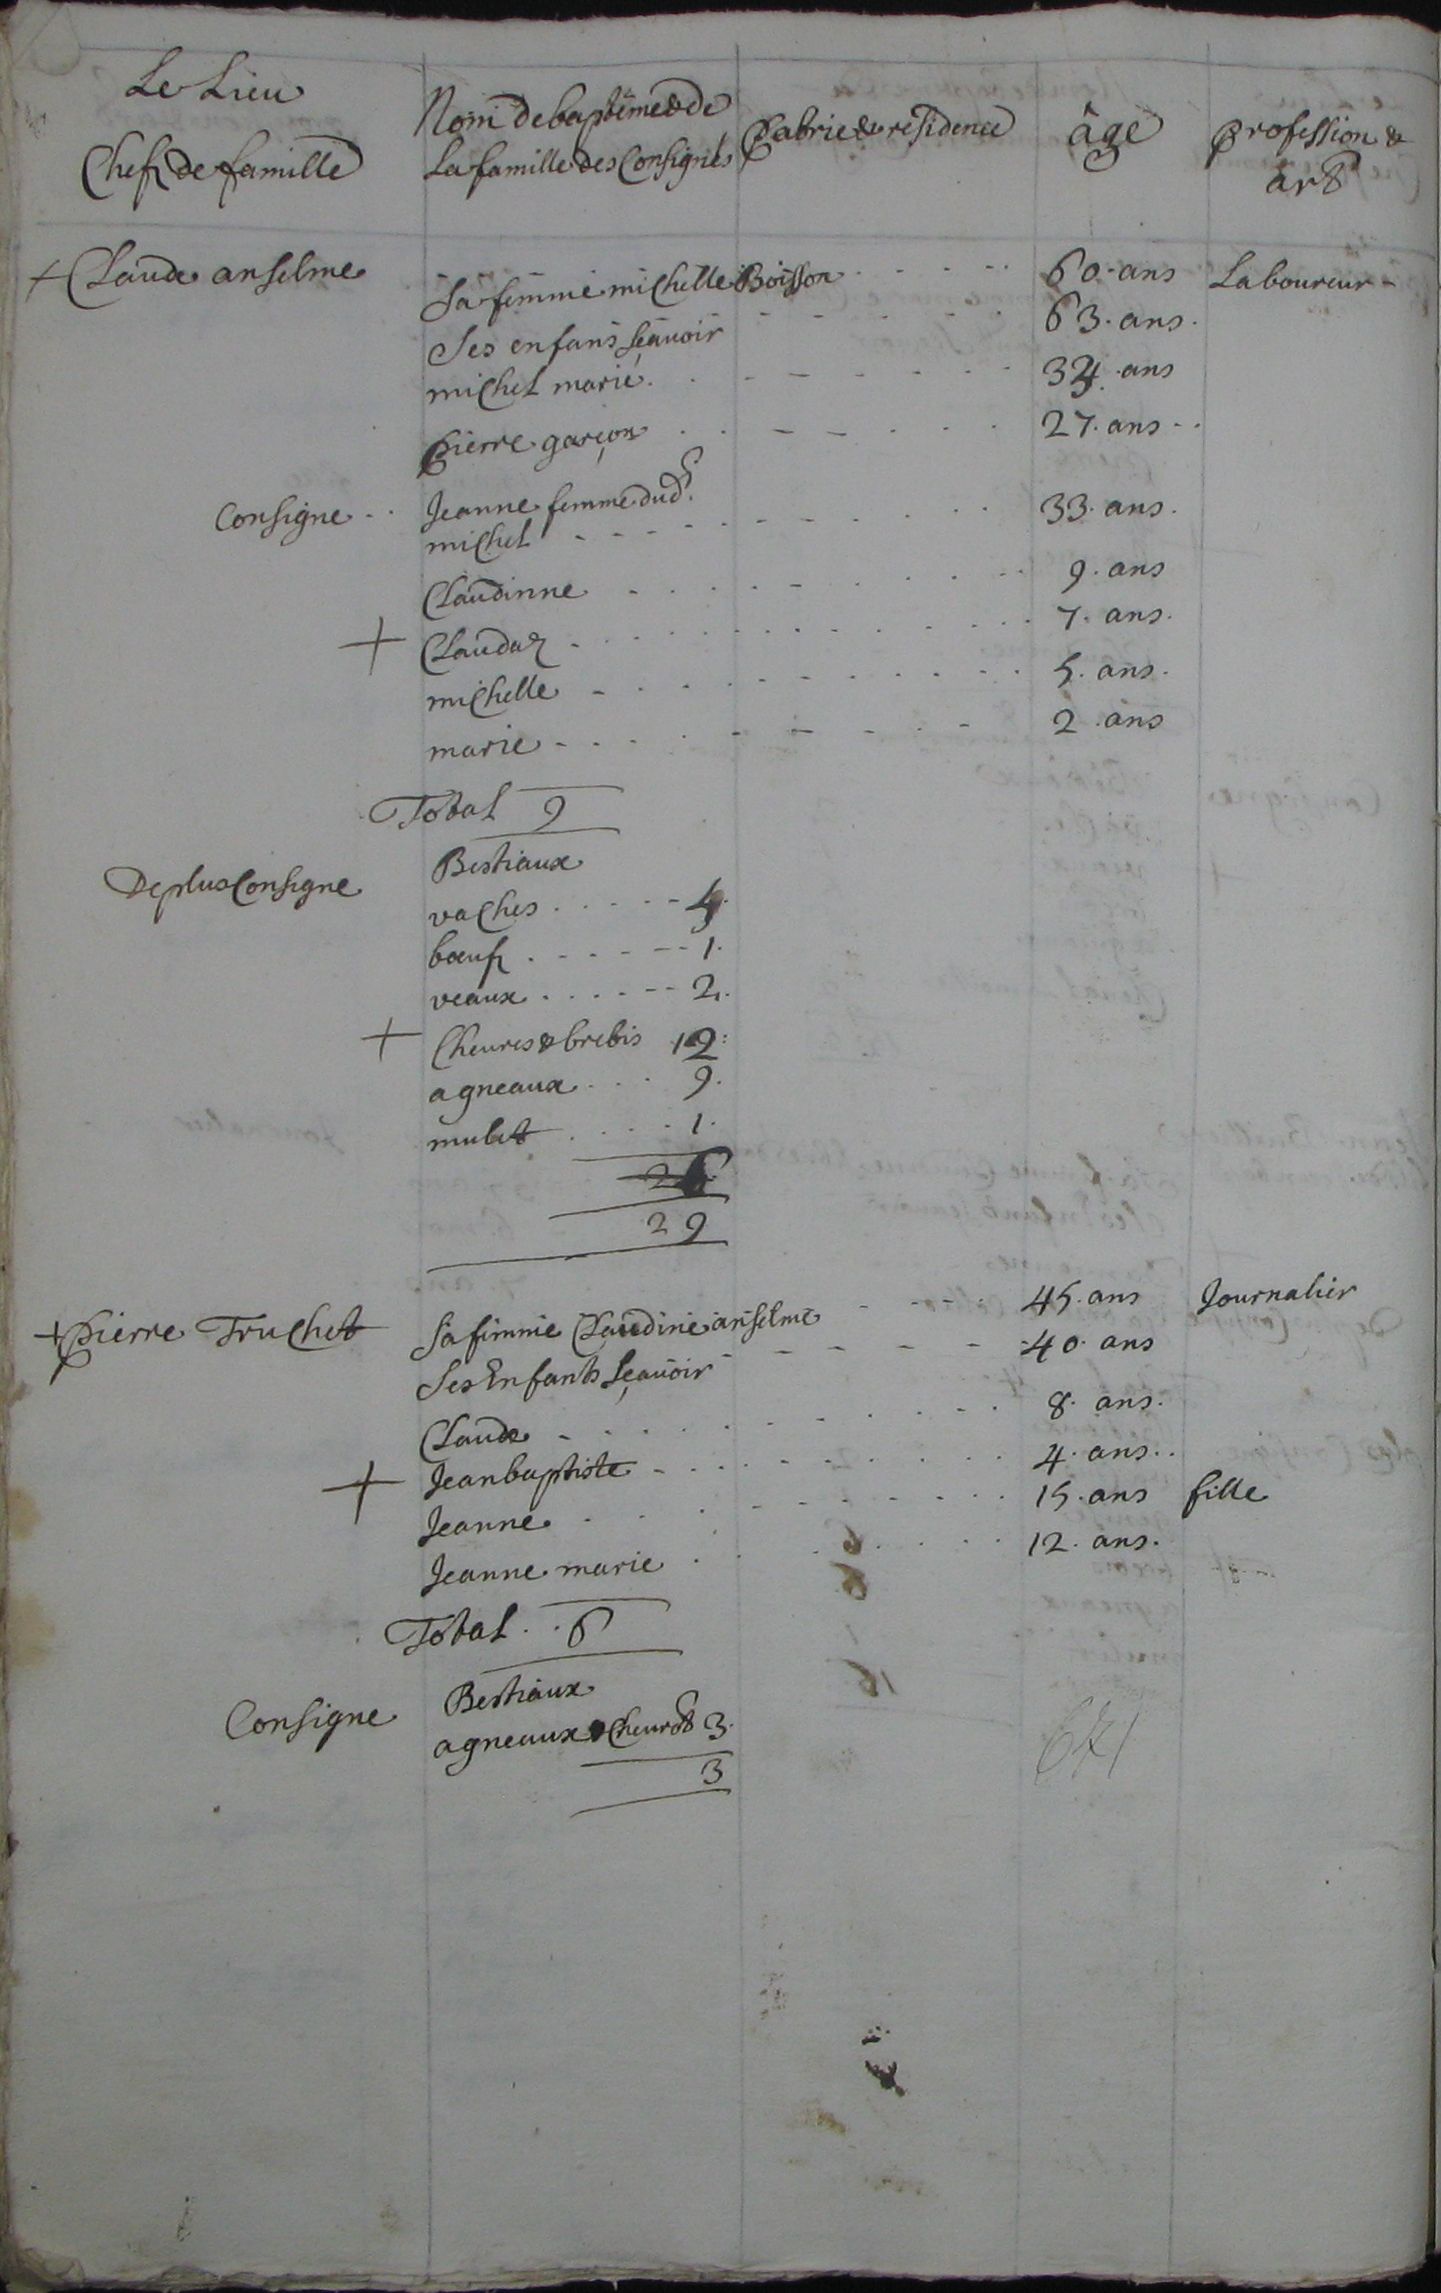 Le Lieu
Chefs de famille
Nom de baptême & de
La famille des Consignés
Patrie & residence
âge
profession &
art
+ Claude anselme 60. ans Laboureur
Sa femme michelle Boisson 63. ans.
Ses enfans sçauoir
michel marié. 34. ans
pierre garçon 27. ans
Consigne Jeanne femme dud.
michel 33. ans.
Claudinne 9. ans
+ Claudaz 7. ans.
michelle 5. ans.
marie 2. ans
Total 9
De plus Consigne Bestiaux
vaches 4.
bœuf 1.
veaux 2.
+ Cheures & brebis 12:
agneaux 9.
mulet 1.
29
+ pierre Truchet 45. ans Journalier
Sa femme Claudine anselme 40. ans
Ses Enfants sçauoir
Claude 8. ans.
+ Jeanbaptiste 4. ans.
Jeanne 15. ans fille
Jeanne marie 12. ans.
Total 6
Consigne Bestiaux
agneaux & Cheurots 3.
3